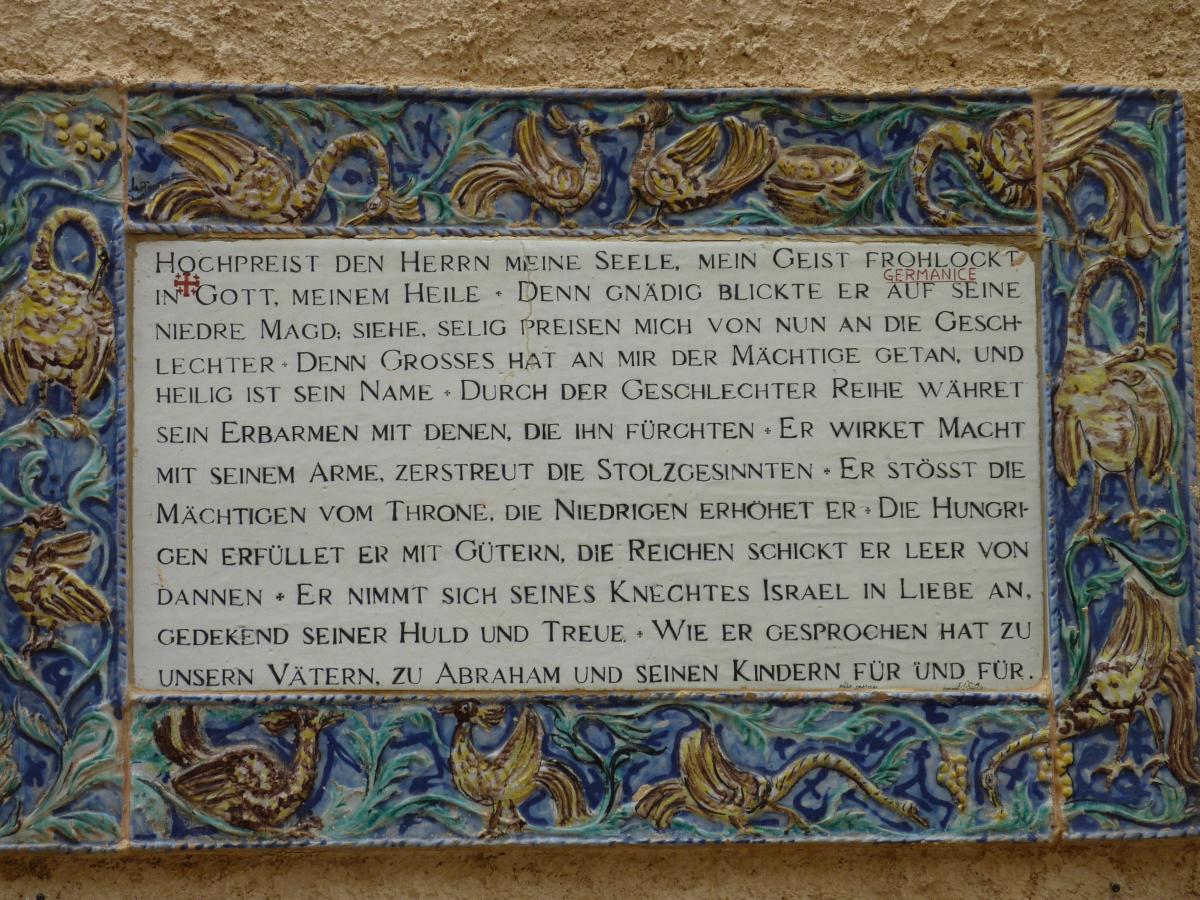 HOCHPREIST DEN HERRN MEINE SEELE, MEIN GEIST FROHLOCKT
GERMANICE
IN GOTT, MEINEM HEILE + DENN GNÄDIG BLICKTE ER AUF SEINE
NIEDRE MAGD; SIEHE, SELIG PREISEN MICH VON NUN AN DIE GESCH-
LECHTER + DENN GROSSES HAT AN MIR DER MÄCHTIGE GETAN, UND
HEILIG IST SEIN NAME + DURCH DER GESCHLECHTER REIHE WÄHRET
SEIN ERBARMEN MIT DENEN, DIE IHN FÜRCHTEN + ER WIRKET MACHT
MIT SEINEM ARME, ZERSTREUT DIE STOLZGESINNTEN + ER STÖSST DIE
MÄCHTIGEN VOM THRONE, DIE NIEDRIGEN ERHÖHET ER + DIE HUNGRI-
GEN ERFÜLLET ER MIT GÜTERN, DIE REICHEN SCHICKT ER LEER VON
DANNEN + ER NIMMT SICH SEINES KNECHTES ISRAEL IN LIEBE AN,
GEDEKEND SEINER HULD UND TREUE + WIE ER GESPROCHEN HAT ZU
UNSERN VÄTERN, ZU ABRAHAM UND SEINEN KINDERN FÜR UND FÜR.